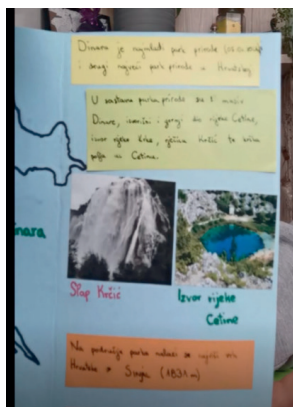 Dinara je najmlađi park prirode
i drugi najveći park prirode u Hrvatskoj.
U sastavu parka prirode su i masiv
Dinare, izvorišni i gornji dio rijeke Cetine,
izvor rijeke Krke, rječica Krčić te krška
polja uz Cetinu.
inara
Slap Krčić
Izvor rijeke
Cetine
Na području parka nalazi se najviši vrh
Hrvatske Sinjal (1831 m)